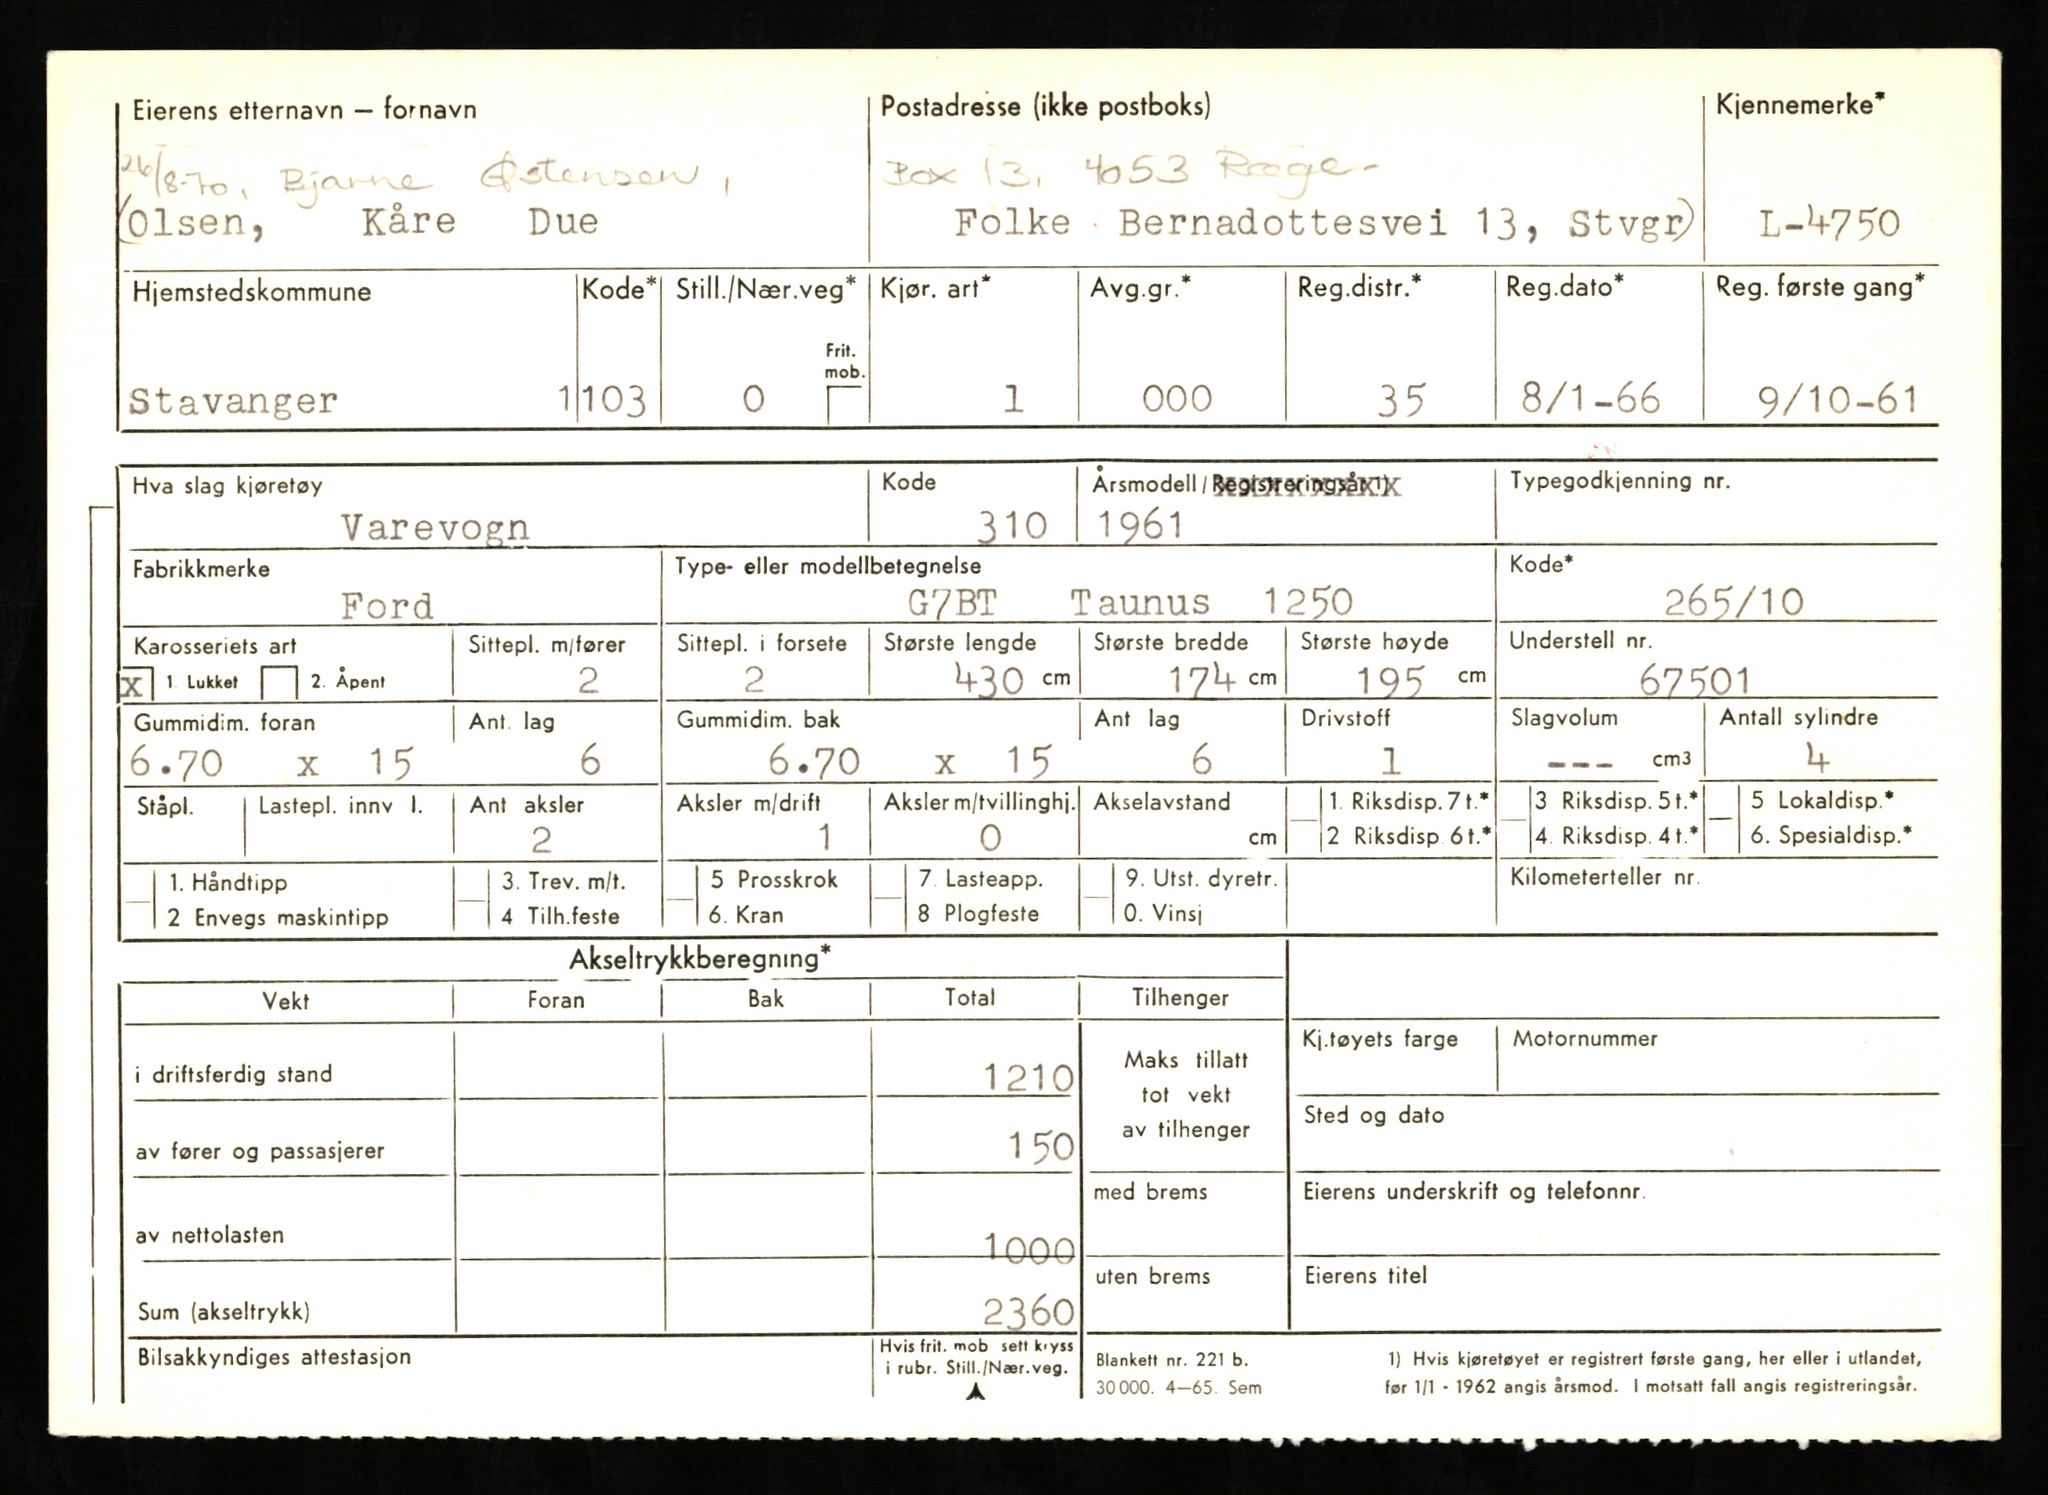 Eierens etternavn — fornavn Postadresse (ikke postboks) Kjennemerke*
26/8-70, Bjarne Østensen, Box 13, 4053 Ræge-
(Olsen, Kåre Due Folke Bernadottesvei 13, Stvgr) L-4750
Hjemstedskommune Kode* Still./Nær.veg* Kjør. art* Avg.gr.* Reg.distr.* Reg.dato* Reg. første gang*
Frit. mob.
Stavanger 1103 0 1 000 35 8/1-66 9/10-61
Hva slag kjøretøy Kode Årsmodell/Registreringsår 1) Typegodkjenning nr.
Varevogn 310 1961
Fabrikkmerke Type- eller modellbetegnelse Kode*
Ford G7BT Taunus 1250 265/10
Karosseriets art Sittepl. m/fører Sittepl. i forsete Største lengde Største bredde Største høyde Understell nr.
X 1. Lukket 2. Åpent 2 2 430 cm 174 cm 195 cm 67501
Gummidim. foran Ant. lag Gummidim. bak Ant lag Drivstoff Slagvolum Antall sylindre
6.70 x 15 6 6.70 x 15 6 1 --- cm3 4
Ståpl. Lastepl. innv l. Ant aksler Aksler m/drift Aksler m/tvillinghj. Akselavstand 1. Riksdisp. 7 t.* 3 Riksdisp. 5 t.* 5 Lokaldisp.*
2 1 0 cm 2 Riksdisp 6 t.* 4. Riksdisp. 4 t.* 6. Spesialdisp.*
1. Håndtipp 3. Trev. m/t. 5 Prosskrok 7. Lasteapp. 9. Utst. dyretr. Kilometerteller nr.
2 Envegs maskintipp 4 Tilh.feste 6. Kran 8 Plogfeste 0. Vinsj
Akseltrykkberegning*
Vekt Foran Bak Total Tilhenger
Kj.tøyets farge Motornummer
i driftsferdig stand 1210 Maks tillatt
tot vekt
Sted og dato
av fører og passasjerer 150 av tilhenger
med brems Eierens underskrift og telefonnr.
av nettolasten 1000
uten brems Eierens titel
Sum (akseltrykk) 2360
Bilsakkyndiges attestasjon Hvis frit. mob sett kryss
i rubr. Still./Nær.veg.
Blankett nr. 221 b. 1) Hvis kjøretøyet er registrert første gang, her eller i utlandet,
30 000. 4—65. Sem før 1/1 - 1962 angis årsmod. I motsatt fall angis registreringsår.